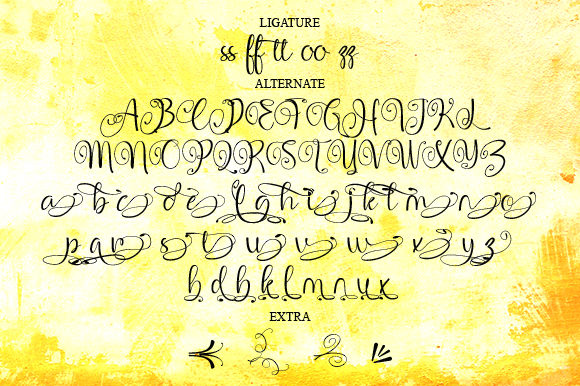 LIGATURE
ss ff tt oo zz
ALTERNATE
A B C D E F G H I J K L
M N O P Q R S T U V W X Y Z
a b c d e f g h i j k l m n o
p q r s t u v w x y z
h d b k l m n u x
EXTRA